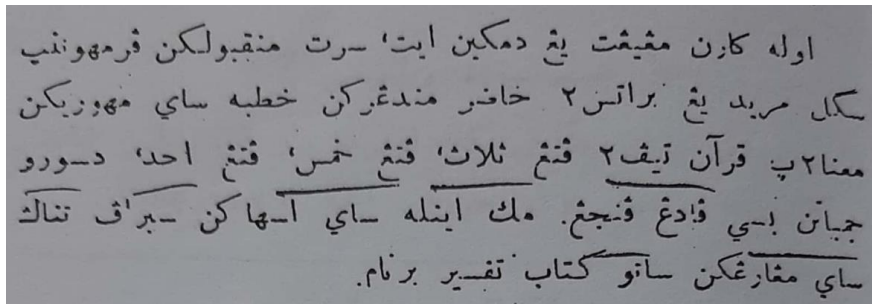 اوله كارن مڠيڠت يڠ دمكين ايت، سرت منقبولكن ڤرمهوننڽ
سكل مريد يڠ براتس٢ حاضر مندڠركن خطبه ساي مهوريكن
معنا٢ڽ قرآن تيڤ٢ ڤتڠ ثلاث، ڤتڠ خمس، ڤتڠ احد، دسورو
جمباتن بسي ڤادڠ ڤنجڠ. مك اينله ساي اسهاكن سبراڤ تناݢ
ساي مڠارڠكن ساتو كتاب تفسير برنام.